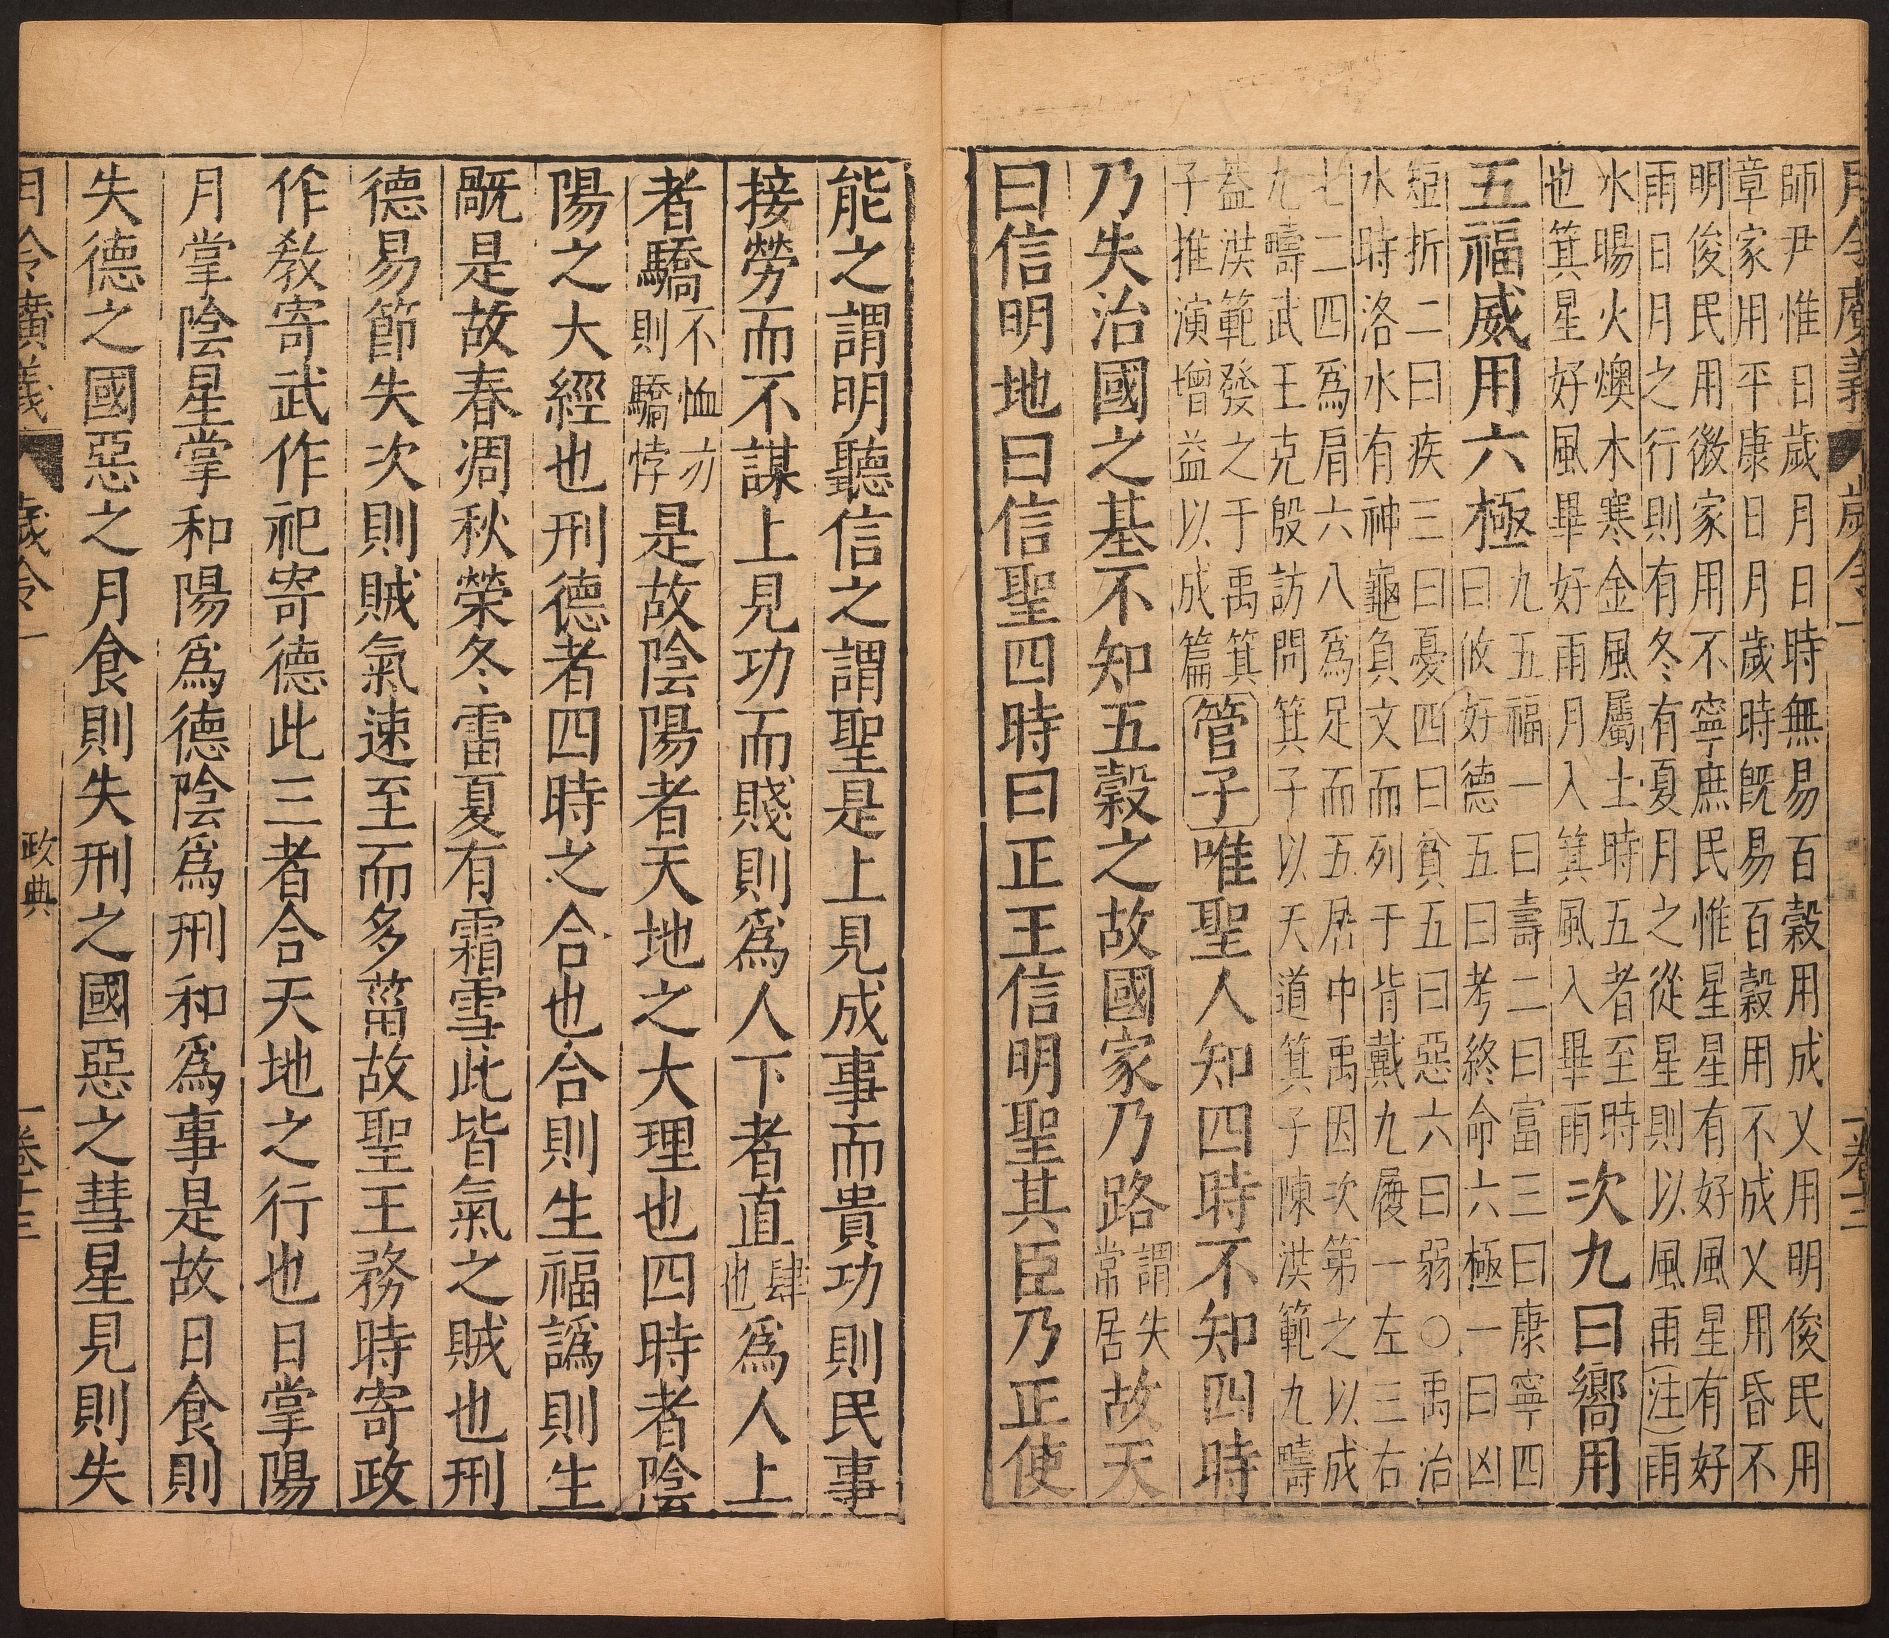 月令廣義 歲令一 卷十三
師尹惟日歲月日時無易百穀用成乂用明俊民用
章家用平康日月歲時旣易百穀用不成乂用昏不
明俊民用微家用不寧庶民惟星星有好風星有好
雨日月之行則有冬有夏月之從星則以風雨注雨
水暘火燠木寒金風屬土時五者至時
也箕星好風畢好雨月入箕風入畢雨
次九曰嚮用
五福威用六極
九五福一曰壽二曰富三曰康寧四
曰攸好德五曰考終命六極一曰凶
短折二曰疾三曰憂四曰貧五曰惡六曰弱○禹治
水時洛水有神龜負文而列于背戴九履一左三右
七二四爲肩六八爲足而五居中禹因次第之以成
九疇武王克殷訪問箕子以天道箕子陳洪範九疇
蓋洪範發之于禹箕
子推演增益以成篇
管子唯聖人知四時不知四時
乃失治國之基不知五穀之故國家乃路謂失常居故天
曰信明地曰信聖四時曰正王信明聖其臣乃正使
能之謂明聽信之謂聖是上見成事而貴功則民事
接勞而不謀上見功而賤則爲人下者直肆也爲人上
者驕不恤功則驕悖是故陰陽者天地之大理也四時者陰
陽之大經也刑德者四時之合也合則生福譌則生
旤是故春凋秋榮冬雷夏有霜雪此皆氣之賊也刑
德易節失次則賊氣速至而多菑故聖王務時寄政
作教寄武作祀寄德此三者合天地之行也日掌陽
月掌陰星掌和陽爲德陰爲刑和爲事是故日食則
失德之國惡之月食則失刑之國惡之彗星見則失
月令廣義 歲令一 政典 卷十三